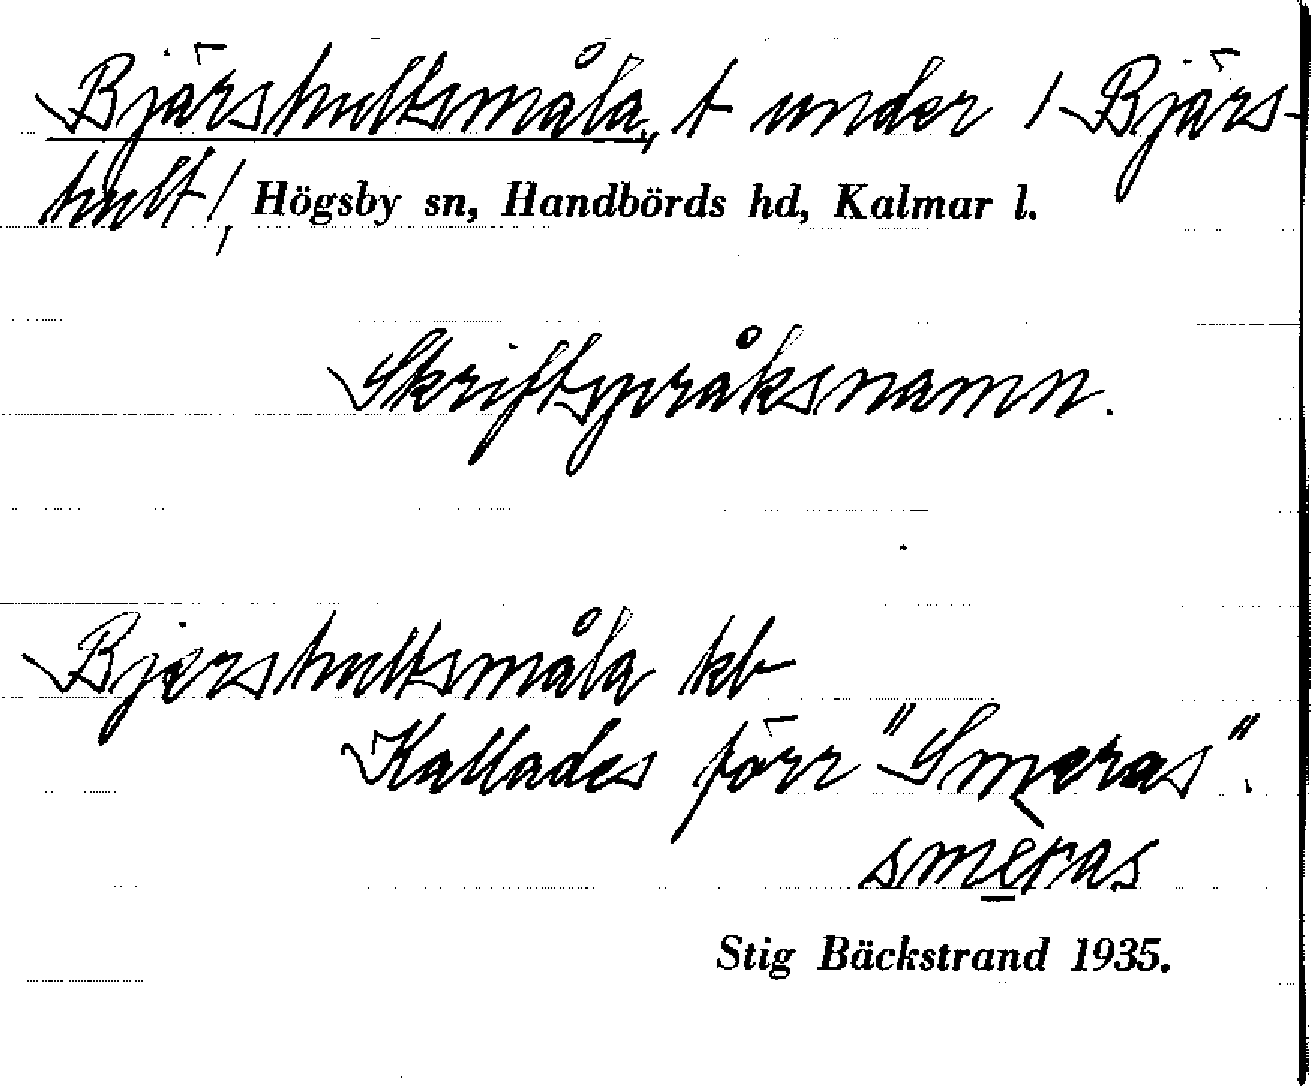 Bjärshultsmåla, t under 1 Bjärs-
hult, Högsby sn, Handbörds hd, Kalmar l.
Skriftspråksnamn.
Bjershultsmåla kb
Kallades förr "Smeras".
smeras
Stig Bäckstrand 1935.